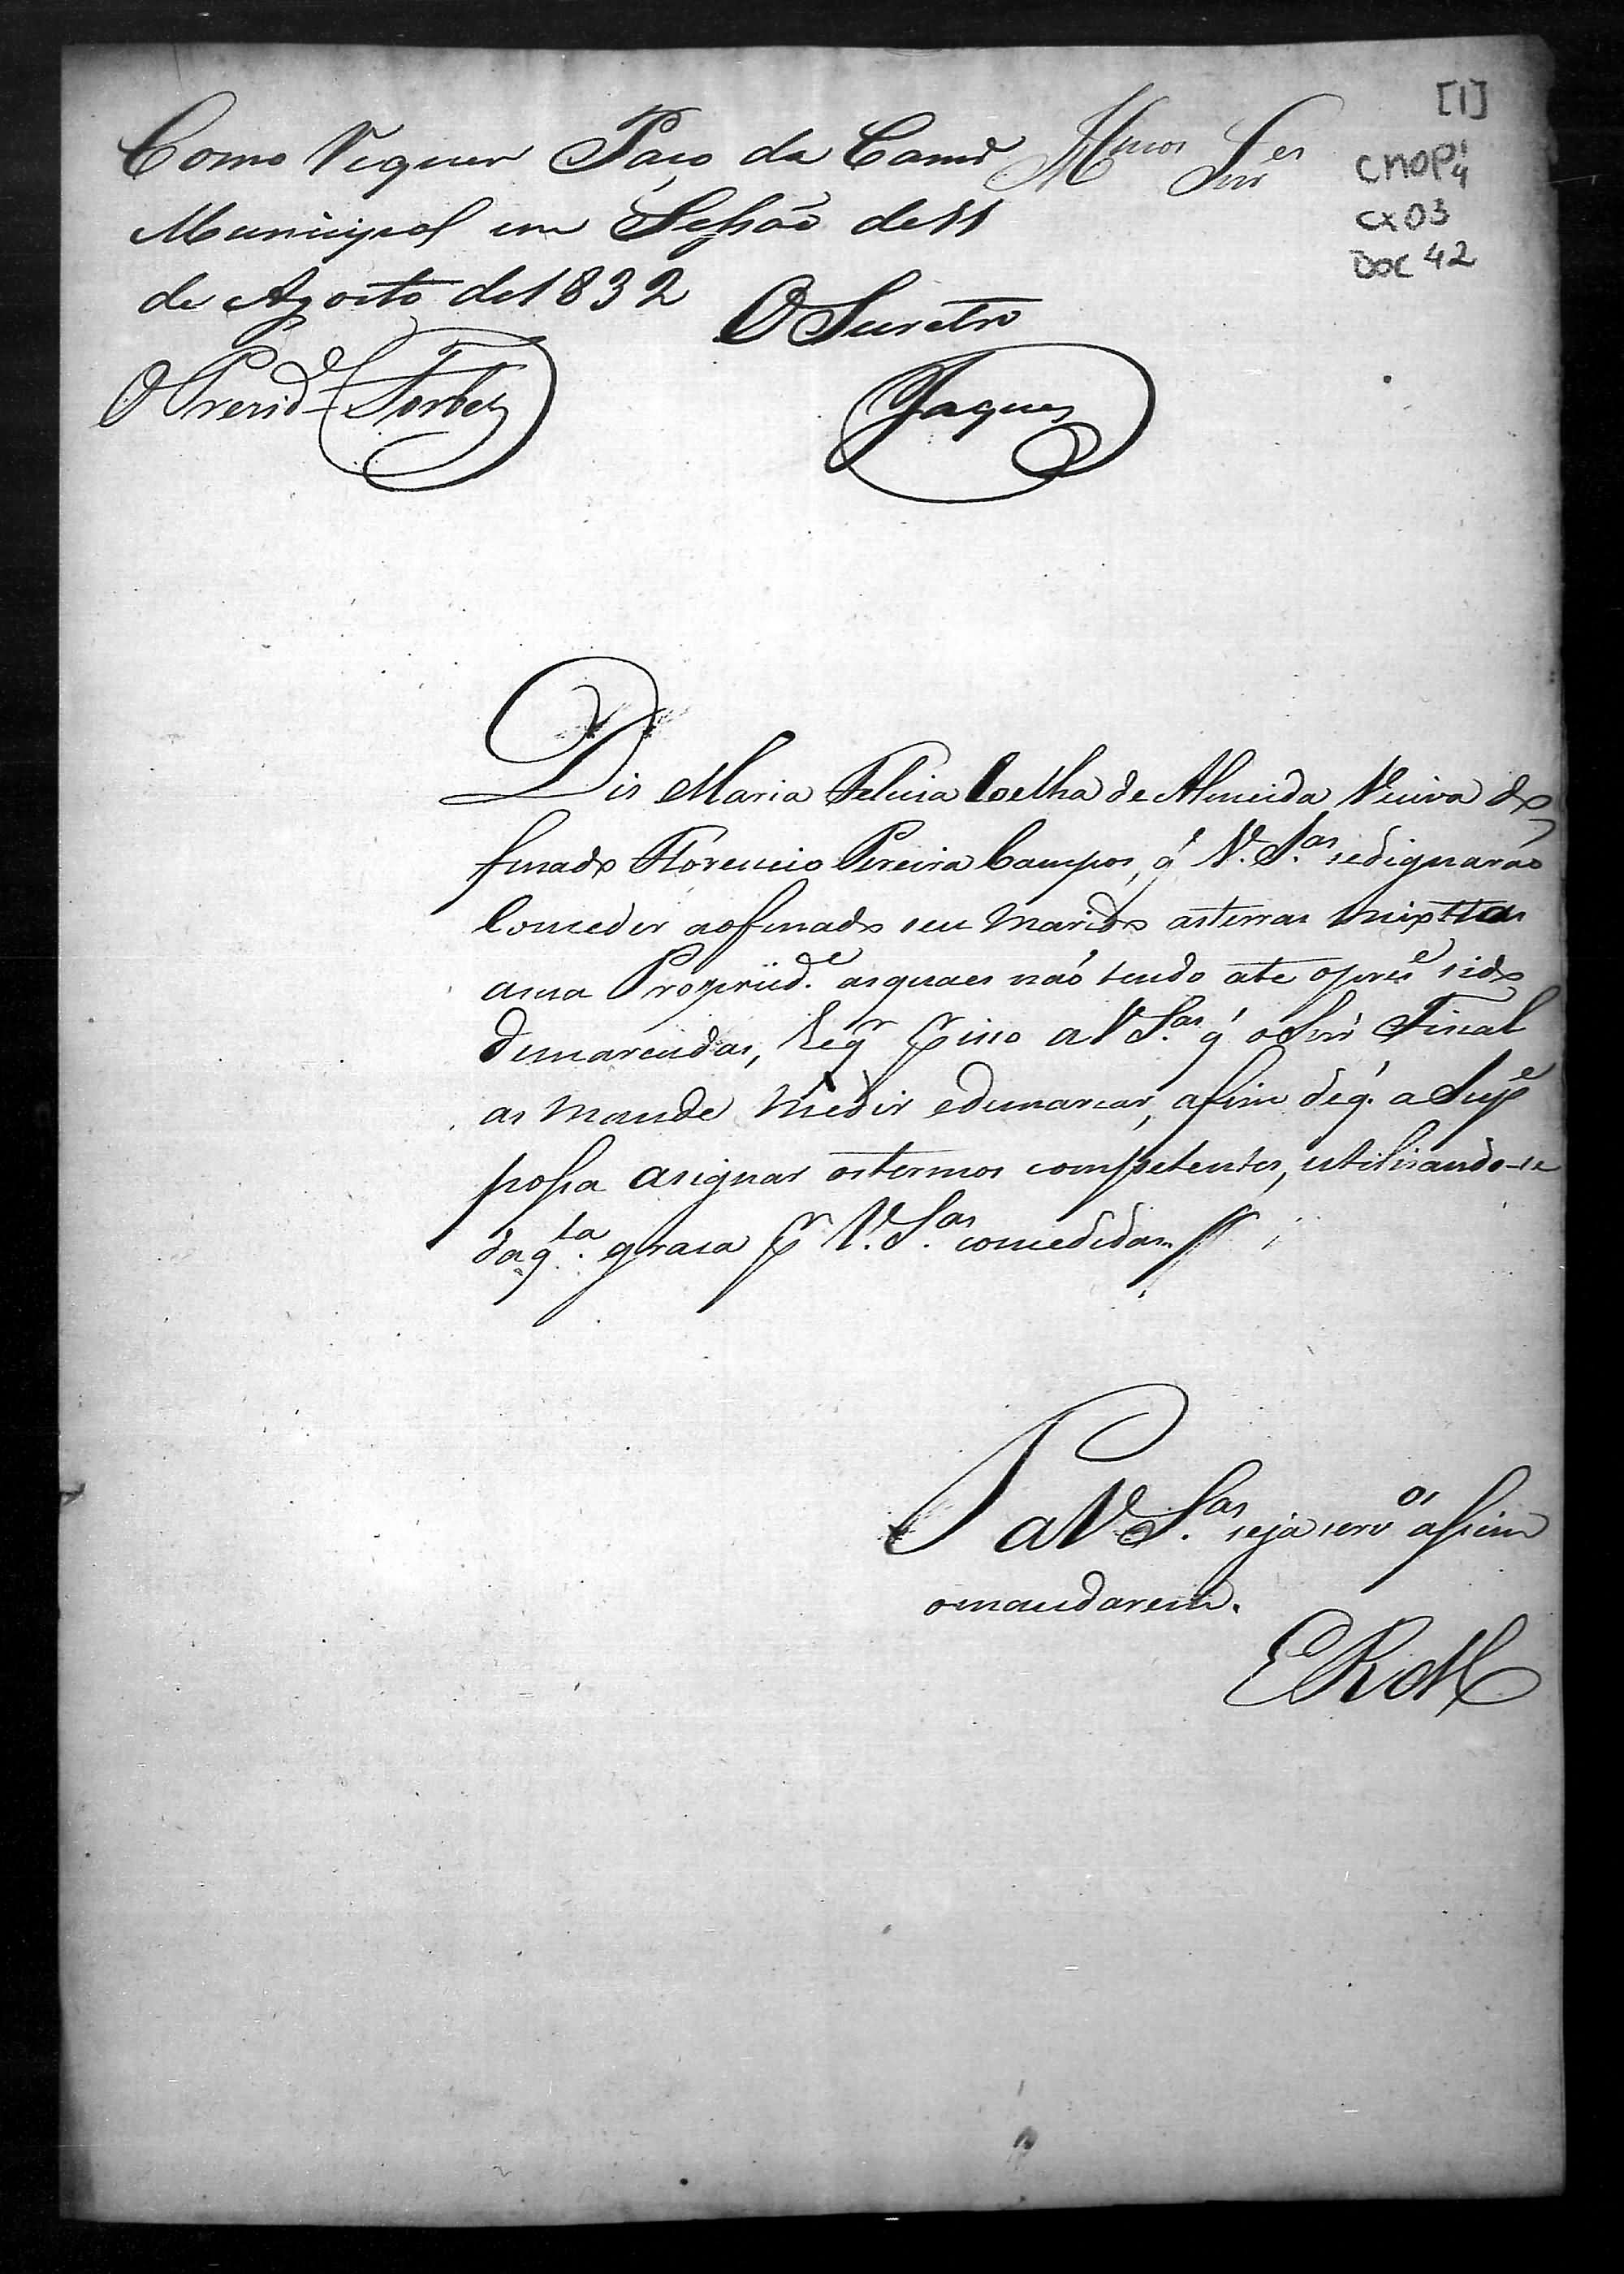 [1]
CMOP 1/4
CX 03
DOC 42
Illmos Snres
Como Requer Paço da Camr
Municipal em Sessão de 11
de Agosto de 1832
O Secretro
O Presid.e Torbes
Jaques
Dis Maria Felicia Coelha de Almeida Veuva do
finado Florencio Pereira Campos, q' V. S.as sedignarão
Conceder aofinado seu Marido asterras mixtas
asua Propried.e asquaes não tendo ate opres.e sido
demarcadas, Req.r p.r isso a V S.as q' o Snr Fiscal
as Mande Medir edemarcar, afim deq.' a Sup.e
possa asignar ostermos competentes, utilisando-se
daq.ta graca p.r V. S.as concedidas
P a V S.as seja serv.os assim
omandarem.
E R M